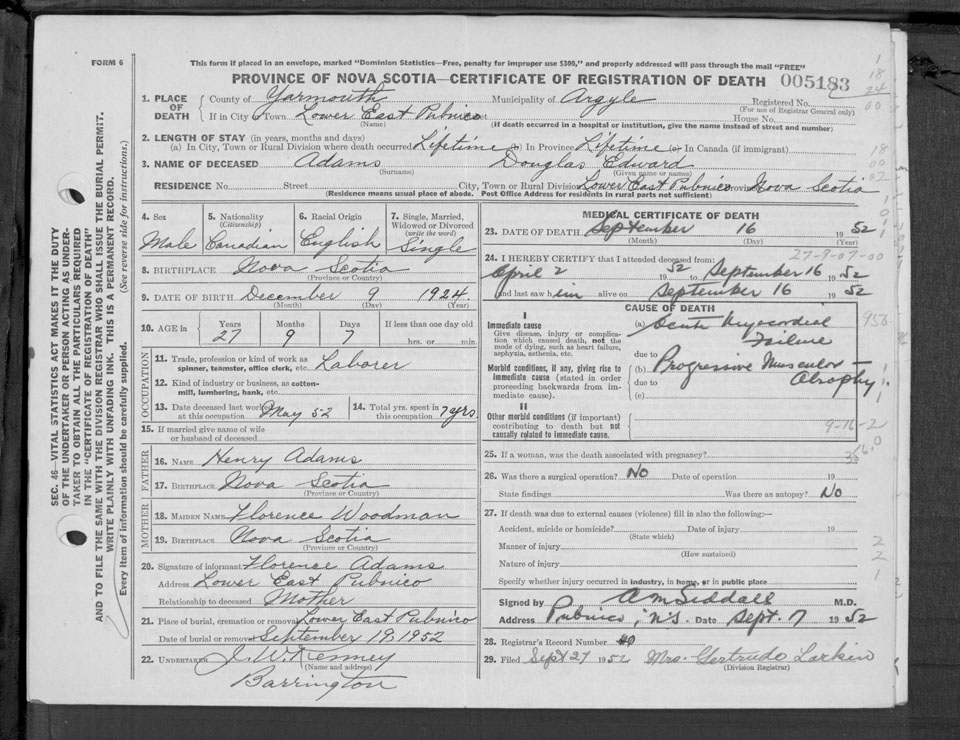 FORM 6
This form if placed in an envelope, marked "Dominion Statistics—Free, penalty for improper use $300," and properly addressed will pass through the mail "FREE"
PROVINCE OF NOVA SCOTIA—CERTIFICATE OF REGISTRATION OF DEATH 005183
1. PLACE OF DEATH { County of Yarmouth Municipality of Argyle Registered No.
(For use of Registrar General only)
If in City or Town Lower East Pubnico House No.
(Name) (If death occurred in a hospital or institution, give the name instead of street and number)
2. LENGTH OF STAY (in years, months and days)
(a) In City, Town or Rural Division where death occurred Lifetime (b) In Province Lifetime (c) In Canada (if immigrant)
3. NAME OF DECEASED Adams Douglas Edward
(Surname) (Given name or names)
RESIDENCE No. Street City, Town or Rural Division Lower East Pubnico Province Nova Scotia
(Residence means usual place of abode. Post Office Address for residents in rural parts not sufficient)
4. Sex Male
5. Nationality (Citizenship) Canadian
6. Racial Origin English
7. Single, Married, Widowed or Divorced (write the word) Single
8. BIRTHPLACE Nova Scotia
(Province or Country)
9. DATE OF BIRTH December 9 1924
(Month) (Day) (Year)
10. AGE in Years 27 Months 9 Days 7 If less than one day old hrs. or min.
OCCUPATION
11. Trade, profession or kind of work as spinner, teamster, office clerk, etc. Laborer
12. Kind of industry or business, as cotton-mill, lumbering, bank, etc.
13. Date deceased last worked at this occupation May 52
14. Total yrs. spent in this occupation 7 yrs.
15. If married give name of wife or husband of deceased
FATHER
16. NAME Henry Adams
17. BIRTHPLACE Nova Scotia
(Province or Country)
MOTHER
18. MAIDEN NAME Florence Woodman
19. BIRTHPLACE Nova Scotia
(Province or Country)
20. Signature of informant Florence Adams
Address Lower East Pubnico
Relationship to deceased Mother
21. Place of burial, cremation or removal Lower East Pubnico
Date of burial or removal September 19, 1952
22. UNDERTAKER J. W. Kenney
(Name and address)
Barrington
MEDICAL CERTIFICATE OF DEATH
23. DATE OF DEATH September 16 1952
(Month) (Day) (Year)
27-9-07-00
24. I HEREBY CERTIFY that I attended deceased from:
April 2 1952 to September 16 1952
and last saw him alive on September 16 1952
CAUSE OF DEATH
I
Immediate cause
Give disease, injury or complication which caused death, not the mode of dying, such as heart failure, asphyxia, asthenia, etc.
(a) Acute Myocardial Failure
due to
Morbid conditions, if any, giving rise to immediate cause (stated in order proceeding backwards from immediate cause).
(b) Progressive Muscular Atrophy.
due to
(c)
II
Other morbid conditions (if important) contributing to death but not causally related to immediate cause.
9-16-2
25. If a woman, was the death associated with pregnancy?
26. Was there a surgical operation? No Date of operation 19
State findings Was there an autopsy? No
27. If death was due to external causes (violence) fill in also the following:—
Accident, suicide or homicide? Date of injury 19
(State which)
Manner of injury
(How sustained)
Nature of injury
Specify whether injury occurred in industry, in home, or in public place
Signed by A M Siddall M.D.
Address Pubnico, N.S. Date Sept. 7 1952
28. Registrar's Record Number
29. Filed Sept 27 1952 Mrs. Gertrude Larkin
(Division Registrar)
SEC. 46—VITAL STATISTICS ACT MAKES IT THE DUTY
OF THE UNDERTAKER OR PERSON ACTING AS UNDER-
TAKER TO OBTAIN ALL THE PARTICULARS REQUIRED
IN THE "CERTIFICATE OF REGISTRATION OF DEATH"
AND TO FILE THE SAME WITH THE DIVISION REGISTRAR WHO SHALL ISSUE THE BURIAL PERMIT.
WRITE PLAINLY WITH UNFADING INK. THIS IS A PERMANENT RECORD.
Every item of information should be carefully supplied. (See reverse side for instructions.)